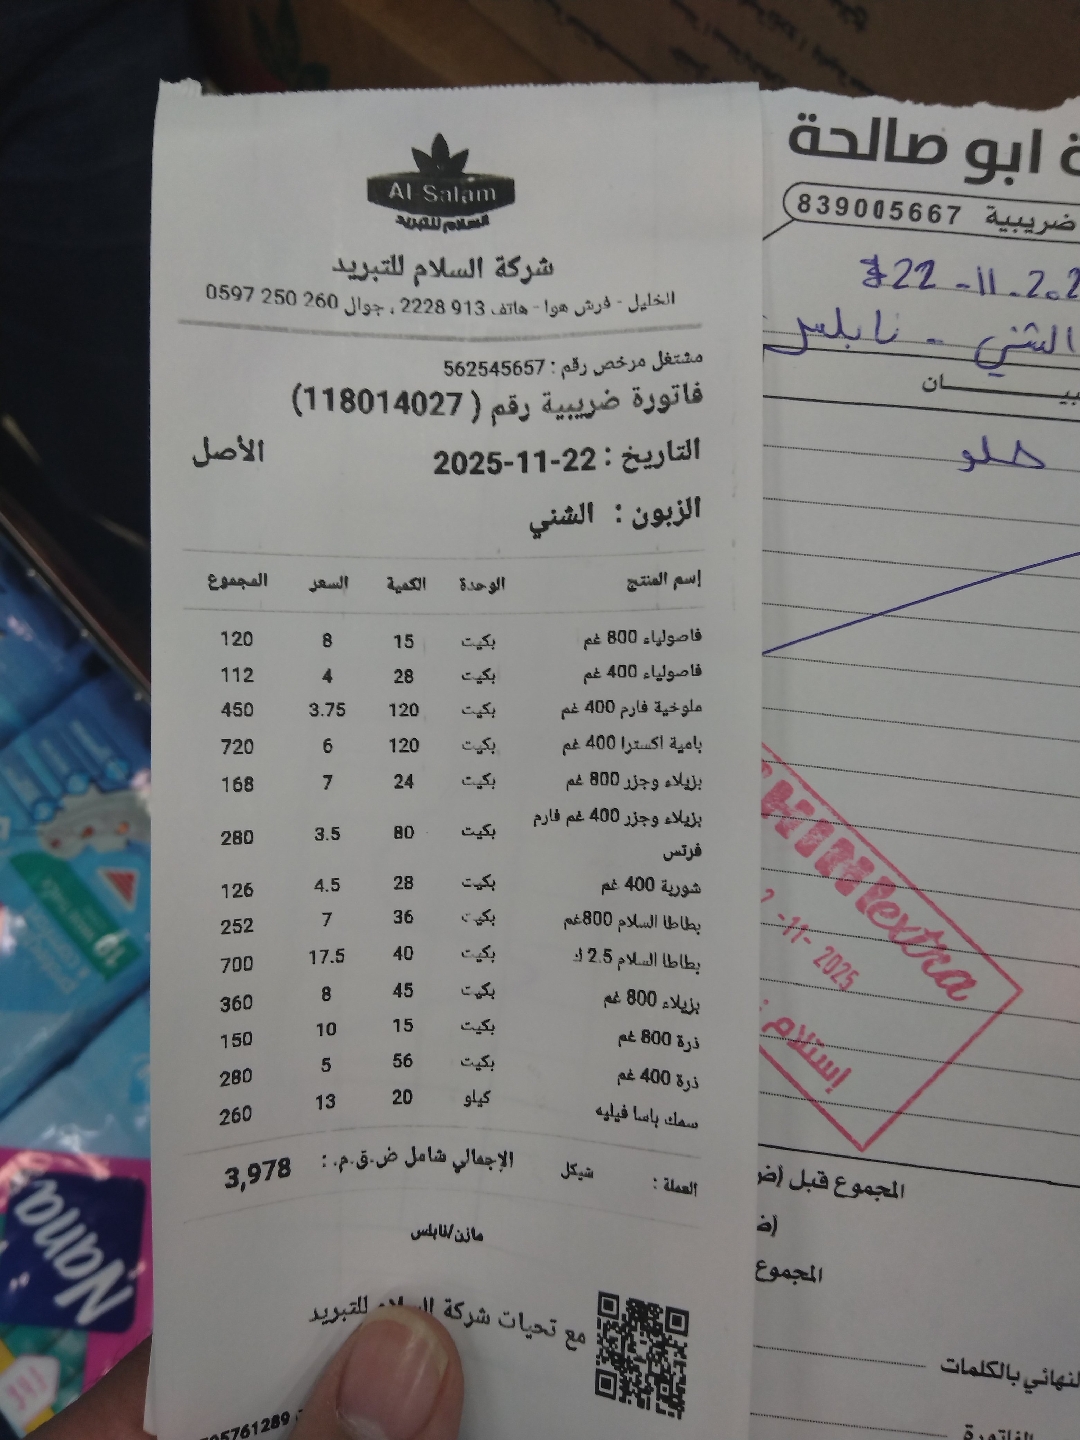 Al Salam
السلام للتبريد
شركة السلام للتبريد
الخليل - فرش هوا - هاتف 913 2228 ، جوال 260 250 0597
مشتغل مرخص رقم : 562545657
فاتورة ضريبية رقم ( 118014027)
التاريخ : 22-11-2025 الأصل
الزبون : الشني
إسم المنتج الوحدة الكمية السعر المجموع
فاصولياء 800 غم بكيت 15 8 120
فاصولياء 400 غم بكيت 28 4 112
ملوخية فارم 400 غم بكيت 120 3.75 450
بامية اكسترا 400 غم بكيت 120 6 720
بزيلاء وجزر 800 غم بكيت 24 7 168
بزيلاء وجزر 400 غم فارم بكيت 80 3.5 280
فرتس
شوربة 400 غم بكيت 28 4.5 126
بطاطا السلام 800غم بكيت 36 7 252
بطاطا السلام 2.5 ك بكيت 40 17.5 700
بزيلاء 800 غم بكيت 45 8 360
ذرة 800 غم بكيت 15 10 150
ذرة 400 غم بكيت 56 5 280
سمك باسا فيليه كيلو 20 13 260
العملة : شيكل الإجمالي شامل ض.ق.م. : 3,978
مازن/نابلس
مع تحيات شركة السلام للتبريد
ابو صالحة
ضريبية 839005667
الشني - نابلس
حلو
extra
-11- 2025
إستلام :
المجموع قبل (ض
(ض
المجموع
النهائي بالكلمات
الفاتورة
Nana